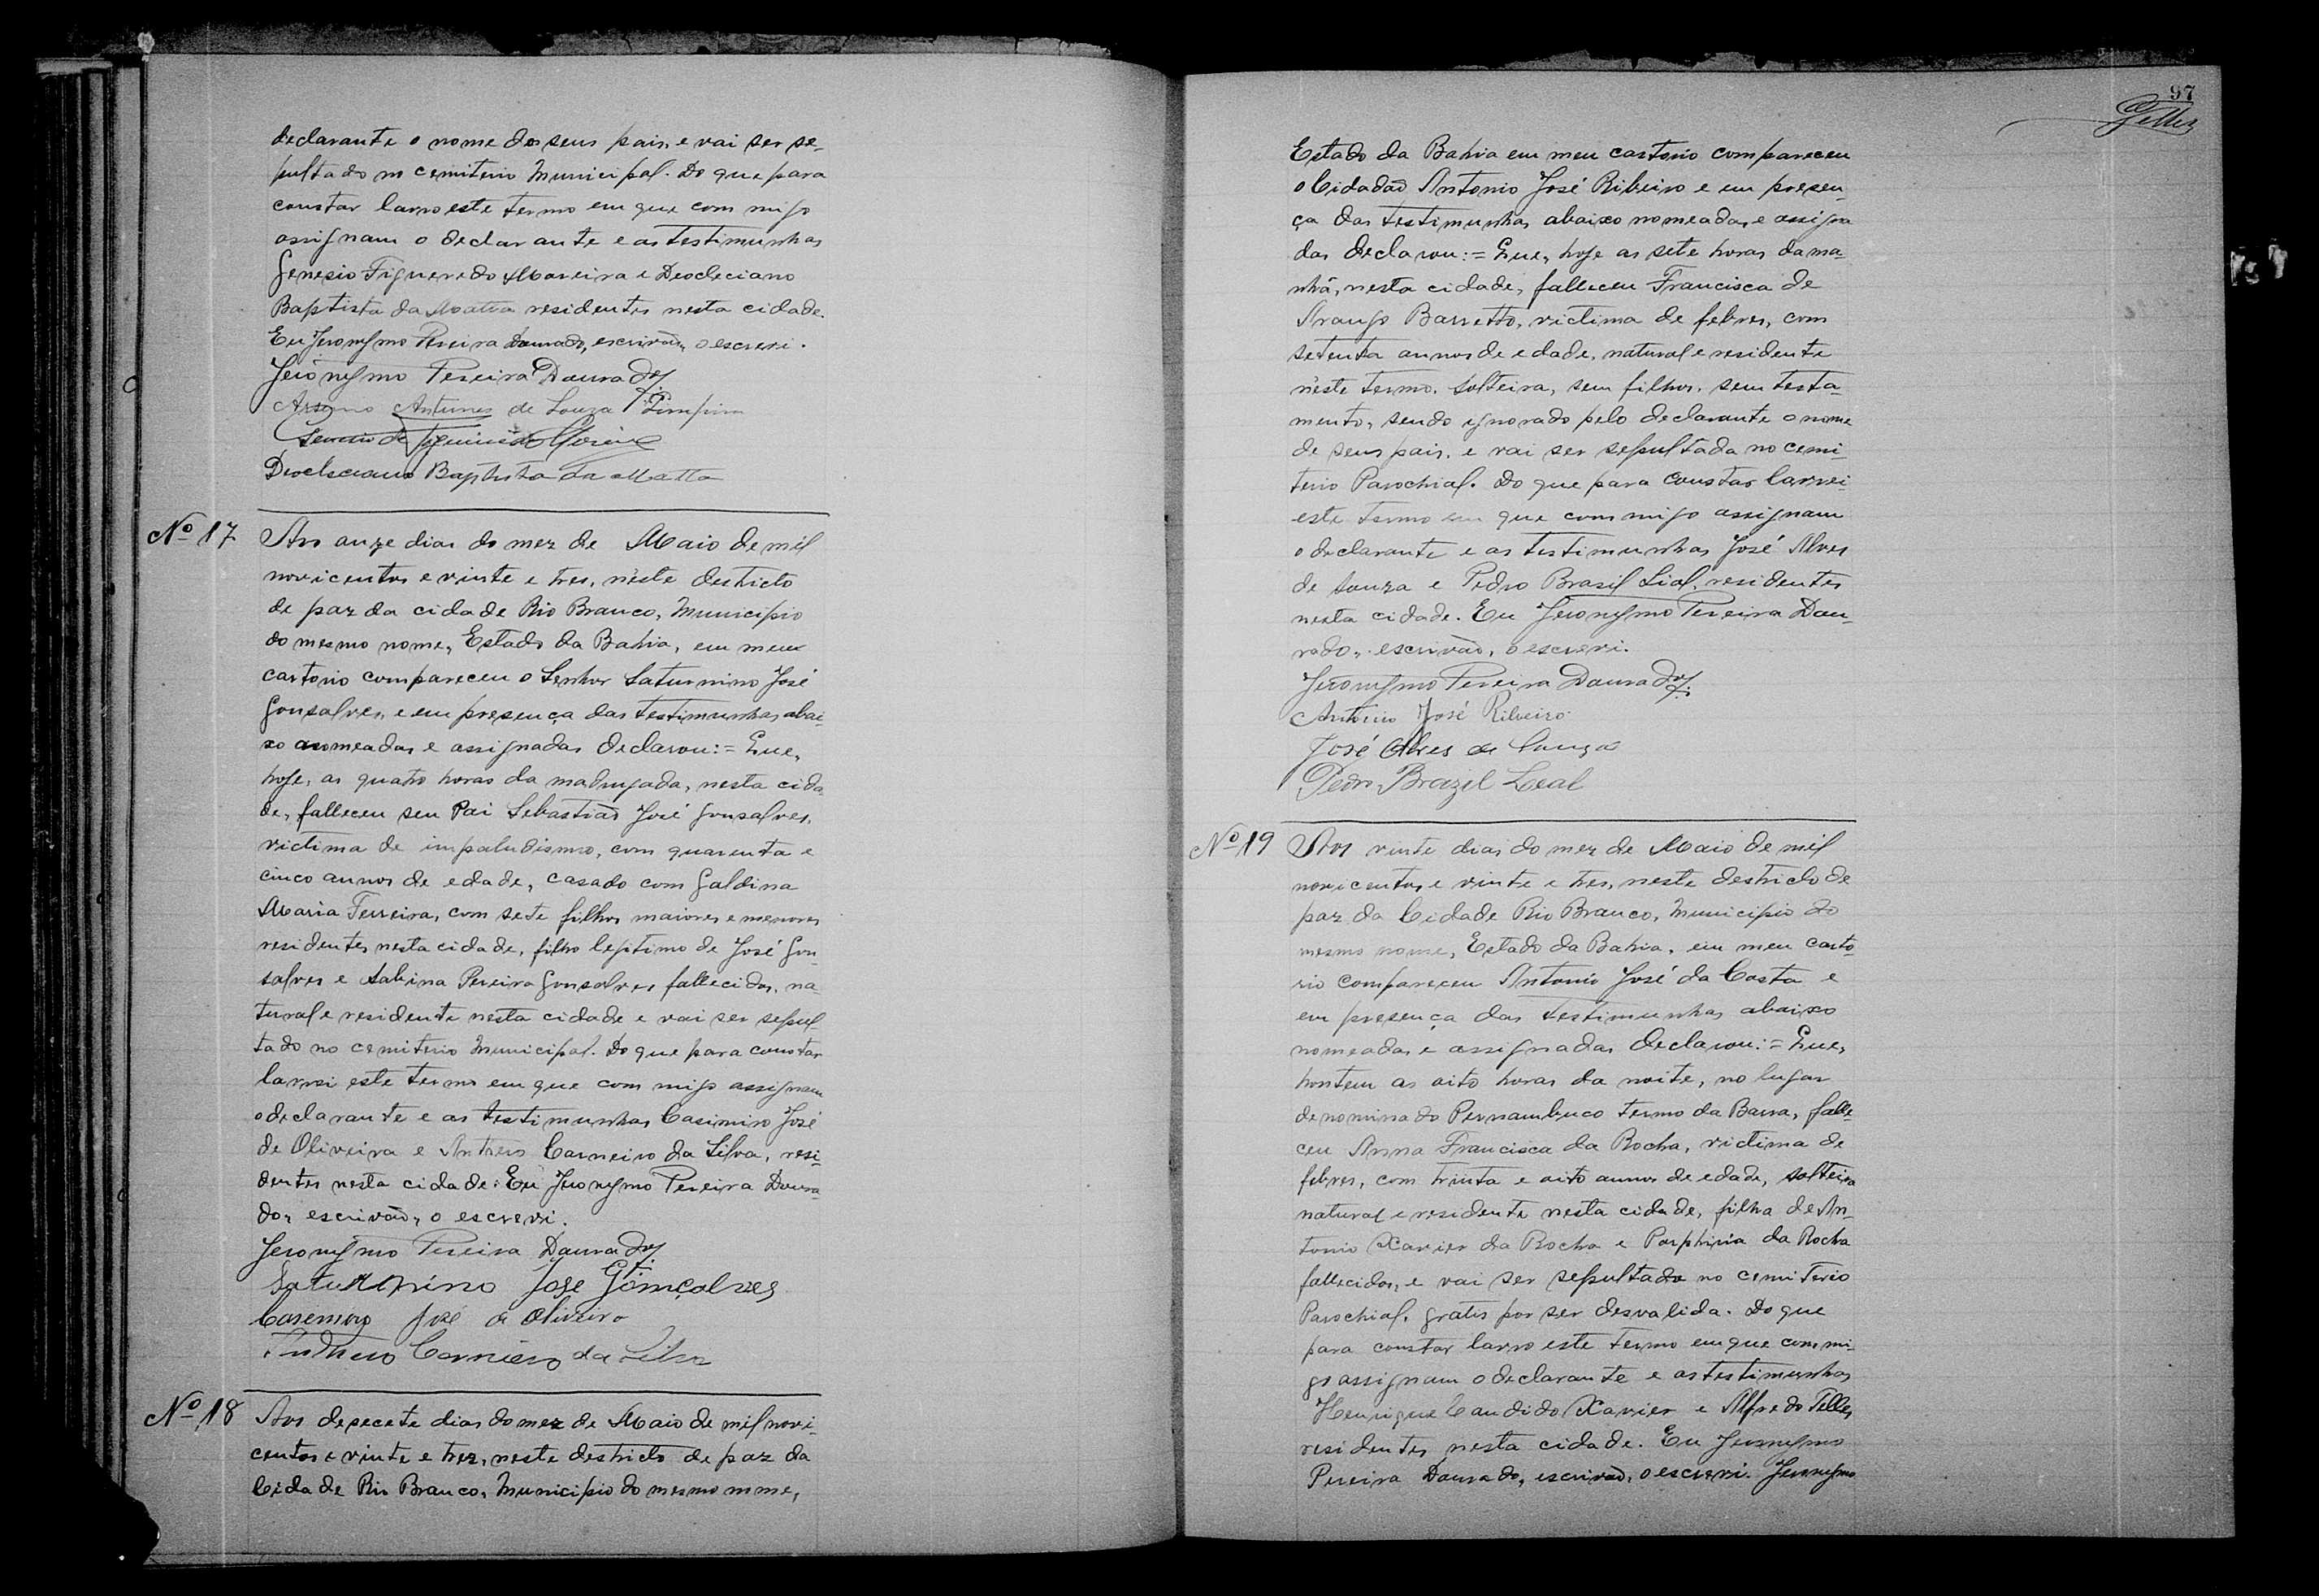 declarante o nome dos seus pais, e vai ser se-
pultado no cemiterio Municipal. Do que para
constar lavro este termo em que com migo
assignam o declarante e as testimunhas
Genesio Figueredo Moreira e Deocleciano
Baptista da Matta residentes nesta cidade.
Eu Jeronymo Pereira Dourado, escrivão, o escrevi.
Jeronymo Pereira Dourado
Antunes de Souza
Deocleciano Baptista da Matta
Nº 17
Aos onze dias do mez de Maio de mil
novicentos e vinte e tres, nèste destricto
de paz da cidade Rio Branco, Municipio
do mesmo nome, Estado da Bahia, em meu
cartorio compareceu o Senhor Saturnino José
Gonsalves, e em presença das testimunhas abai-
xo nomeadas e assignadas declarou:= Que,
hoje, as quatro horas da madrugada, nesta cida
de, falleceu seu Pai Sebastião José Gonsalves,
victima de impaludismo, com quarenta e
cinco annos de edade, casado com Galdina
Maria Ferreira, com sete filhos maiores e menores
residentes nesta cidade, filho legitimo de José Gon-
salves e Sabina Pereira Gonsalves fallecidos, na-
tural e residente nesta cidade e vai ser sepul-
tado no cemiterio Municipal. Do que para constar
lavrei este termo em que com migo assignam
o declarante e as testimunhas Casimiro José
de Oliveira e Anthero Carneiro da Silva, resi-
dentes nesta cidade: Eu Jeronymo Pereira Doura-
do, escrivão, o escrevi.
Jeronymo Pereira Dourado
Saturnino Jose Gomçalves
Casemiro José de Oliveira
Anthero Carneiro da Silva
Nº 18
Aos desecete dias do mez de Maio de mil novi-
centos e vinte e trez, neste destricto de paz da
Cidade Rio Branco, Municipio do mesmo nome,
97
Telles
Estado da Bahia em meu cartorio compareceu
o Cidadão Antonio José Ribeiro e em presen-
ça das testimunhas abaixo nomeadas e assigna
das declarou:= Que, hoje as sete horas da ma-
nhã, nesta cidade, falleceu Francisca de
Araujo Barretto, victima de febres, com
setenta annos de edade, natural e residente
nèste termo, solteira, sem filhos, sem testa-
mento, sendo ignorado pelo declarante o nome
de seus pais, e vai ser sepultada no cemi-
terio Parochial. Do que para constar lavrei
este termo em que com migo assignam
o declarante e as testimunhas José Alves
de Souza e Pedro Brasil Lial, residentes
nesta cidade. Eu Jeronymo Pereira Dou-
rado, escrivão, o escrevi.
Jeronymo Pereira Dourado
Antonio José Ribeiro
José Alves de Souza
Pedro Brazil Leal
Nº 19
Aos vinte dias do mez de Maio de mil
novicentos e vinte e tres, neste destricto de
paz da Cidade Rio Branco, Municipio do
mesmo nome, Estado da Bahia, em meu carto-
rio compareceu Antonio José da Costa e
em presença das testimunhas abaixo
nomeadas e assignadas declarou:= Que,
hontem as oito horas da noite, no lugar
denominado Pernambuco termo da Barra, falle-
ceu Anna Francisca da Rocha, victima de
febres, com trinta e oito annos de edade, solteira
natural e residente nesta cidade, filha de An-
tonio Xavier da Rocha e Porphiria da Rocha
fallecidos, e vai ser sepultada no cemiterio
Parochial, gratis por ser desvalida. Do que
para constar lavro este termo em que com mi-
go assignam o declarante e as testimunhas
Henrique Candido Xavier e Alfredo Telles
residentes nesta cidade. Eu Jeronymo
Pereira Dourado, escrivão, o escrevi. Jeronymo